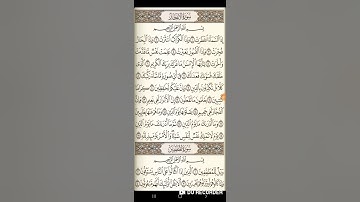 سُورَةُ الانفِطَارِ
بِسْمِ اللَّهِ الرَّحْمَٰنِ الرَّحِيمِ
إِذَا السَّمَاءُ انفَطَرَتْ ١ وَإِذَا الْكَوَاكِبُ انتَثَرَتْ ٢ وَإِذَا الْبِحَارُ
فُجِّرَتْ ٣ وَإِذَا الْقُبُورُ بُعْثِرَتْ ٤ عَلِمَتْ نَفْسٌ مَّا قَدَّمَتْ
وَأَخَّرَتْ ٥ يَا أَيُّهَا الْإِنسَانُ مَا غَرَّكَ بِرَبِّكَ الْكَرِيمِ ٦ الَّذِي
خَلَقَكَ فَسَوَّاكَ فَعَدَلَكَ ٧ فِي أَيِّ صُورَةٍ مَّا شَاءَ رَكَّبَكَ ٨
كَلَّا بَلْ تُكَذِّبُونَ بِالدِّينِ ٩ وَإِنَّ عَلَيْكُمْ لَحَافِظِينَ ١٠ كِرَامًا
كَاتِبِينَ ١١ يَعْلَمُونَ مَا تَفْعَلُونَ ١٢ إِنَّ الْأَبْرَارَ لَفِي نَعِيمٍ ١٣ وَإِنَّ
الْفُجَّارَ لَفِي جَحِيمٍ ١٤ يَصْلَوْنَهَا يَوْمَ الدِّينِ ١٥ وَمَا هُمْ عَنْهَا
بِغَائِبِينَ ١٦ وَمَا أَدْرَاكَ مَا يَوْمُ الدِّينِ ١٧ ثُمَّ مَا أَدْرَاكَ مَا يَوْمُ الدِّينِ
١٨ يَوْمَ لَا تَمْلِكُ نَفْسٌ لِّنَفْسٍ شَيْئًا وَالْأَمْرُ يَوْمَئِذٍ لِّلَّهِ ١٩
سُورَةُ المُطَفِّفِينَ
بِسْمِ اللَّهِ الرَّحْمَٰنِ الرَّحِيمِ
وَيْلٌ لِّلْمُطَفِّفِينَ ١ الَّذِينَ إِذَا اكْتَالُوا عَلَى النَّاسِ يَسْتَوْفُونَ ٢
DU RECORDER